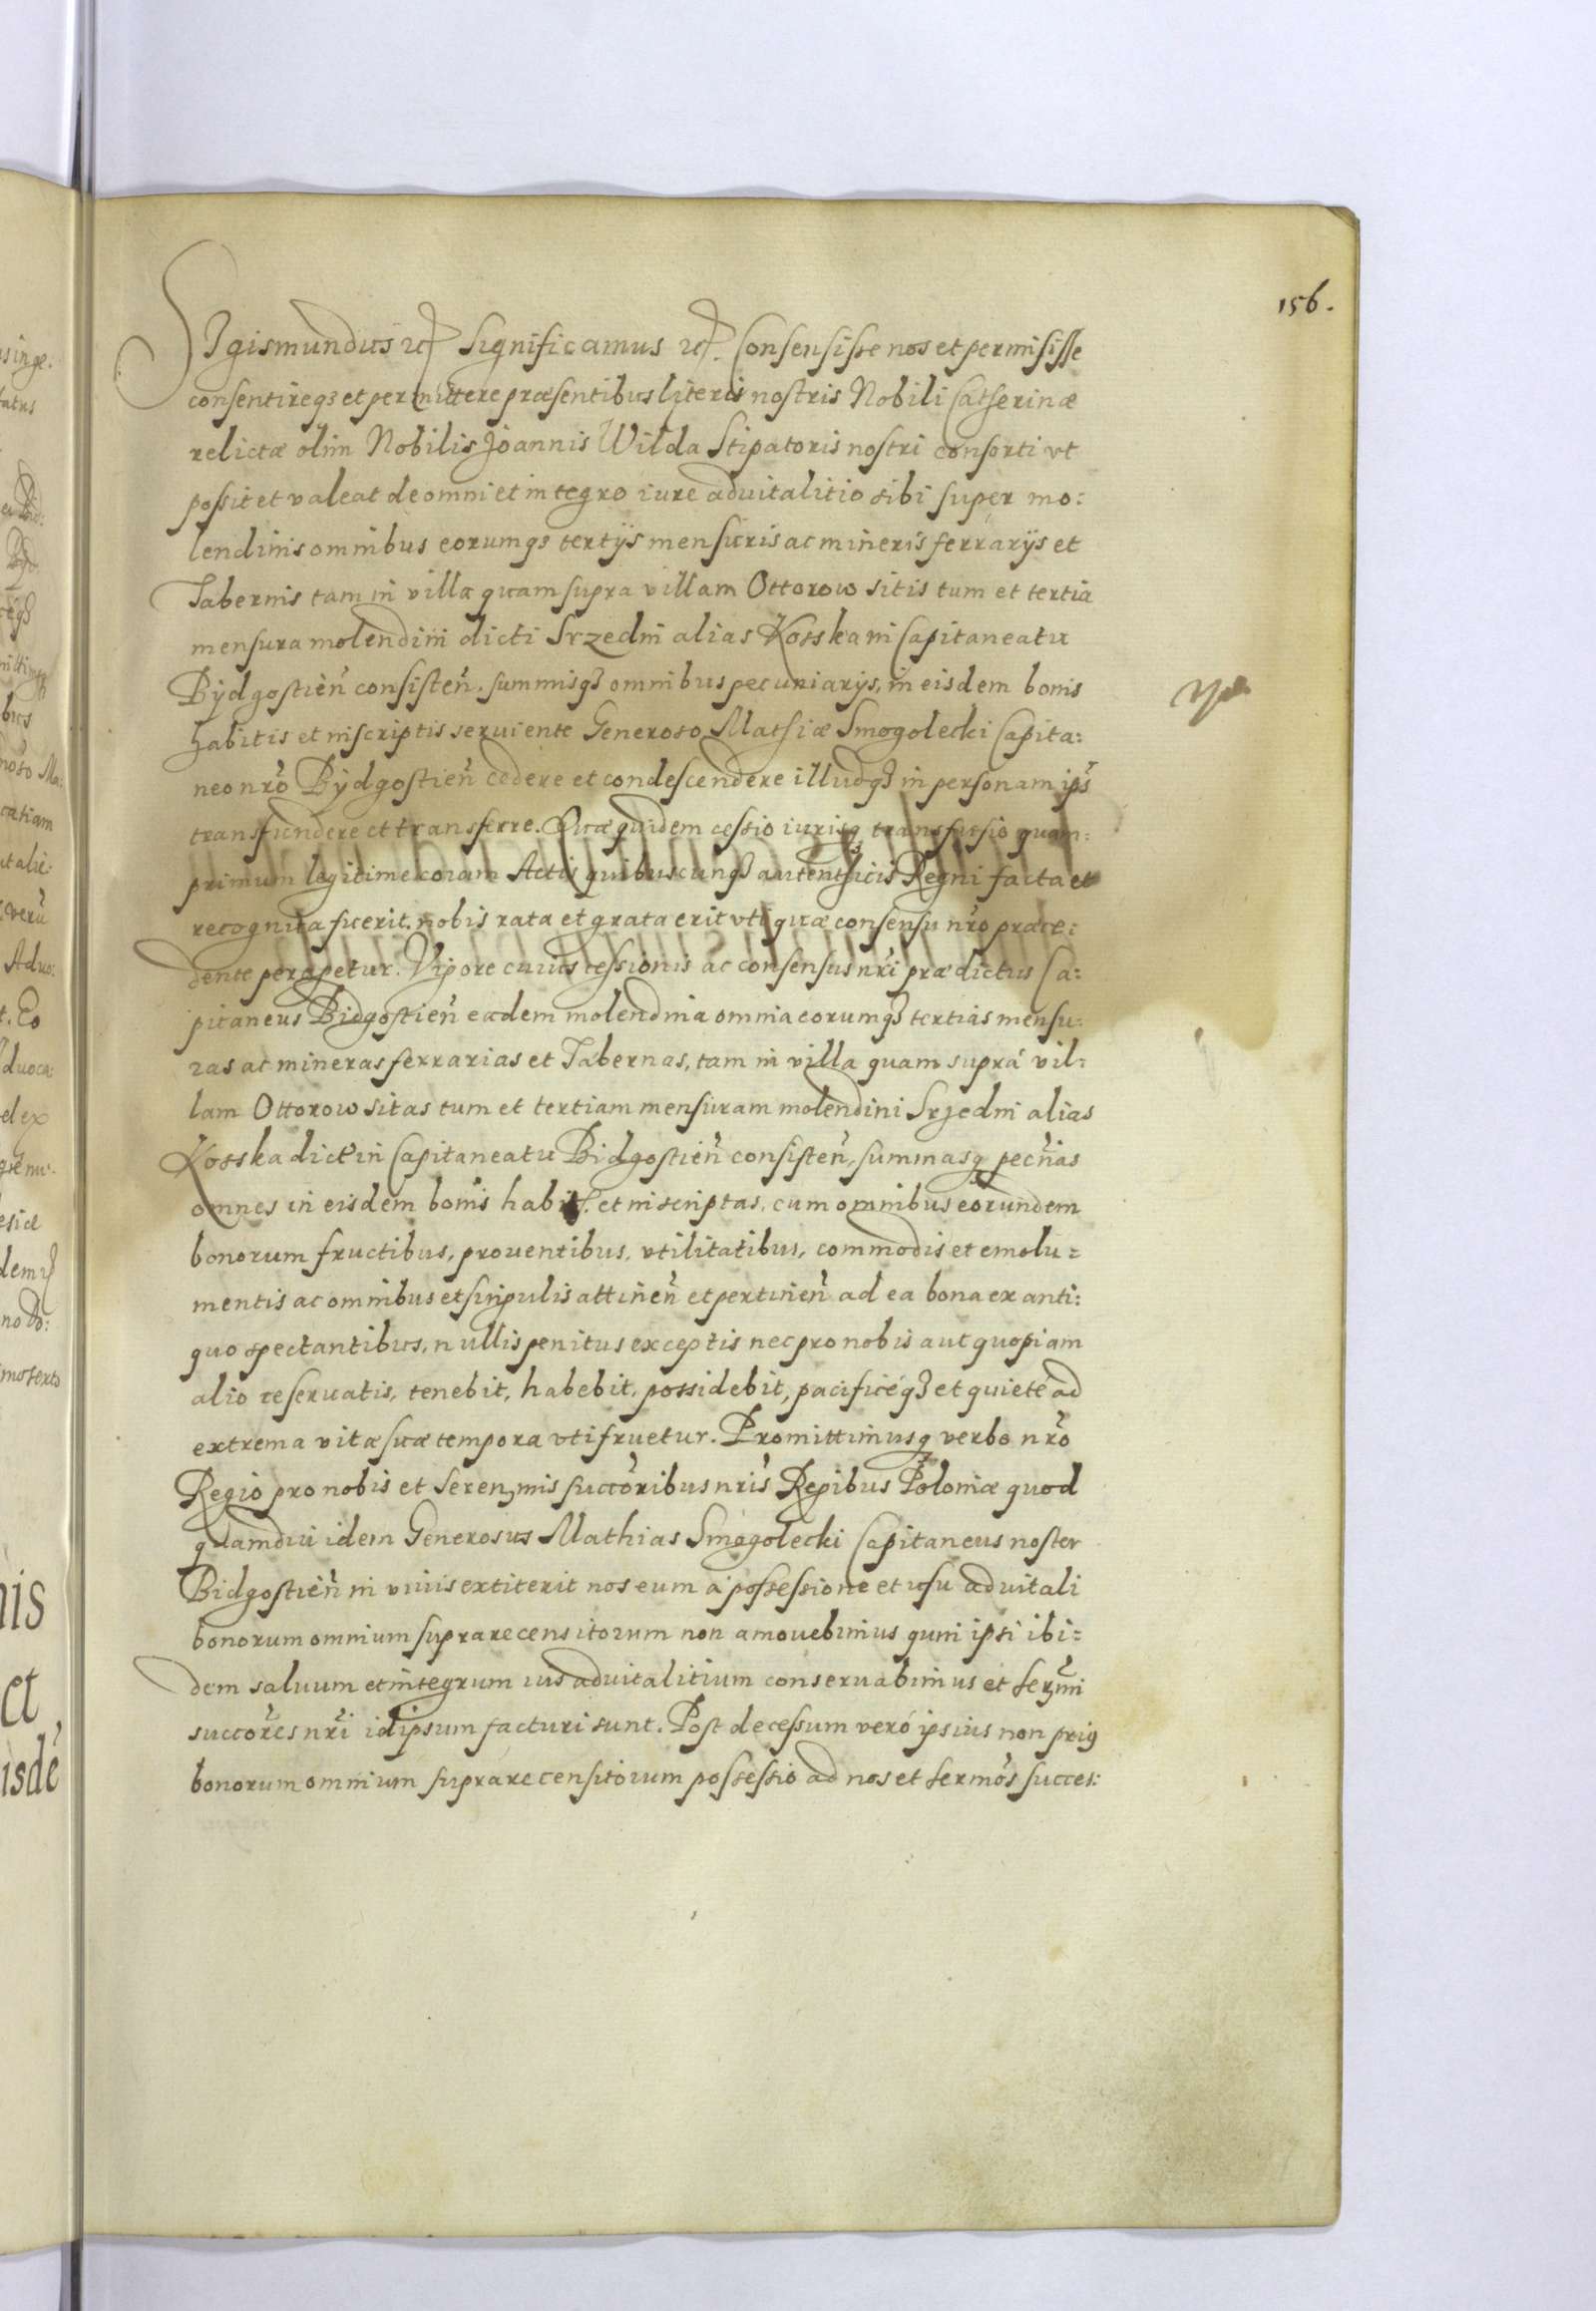 156.
Sigismundus etc Significamus etc. Consensisse nos et permisisse
consentireq3 et permittere præsentibus literis nostris Nobili Catherinæ
relictæ olim Nobilis Joannis Wilda Stipatoris nostri consorti vt
possit et valeat de omni et integro iure aduitalitio sibi super mo:
lendinis omnibus eorumq3 tertijs mensuris ac mineris ferrarijs et
Tabernis tam in villa quam supra villam Ottorow sitis tum et tertia
mensura molendini dicti Srzedni alias Kosska in Capitaneatu
Bydgostien̄ consisten̄. summisq3 omnibus pecuniarijs, in eisdem bonis
habitis et inscriptis seruiente Generoso Mathiæ Smogolecki Capita:
neo nr̄o Bydgostien̄ cedere et condescendere illudq3 in personam ips̄
transfundere et transferre. Quæ quidem cessio iurisq3 transfusio quam:
primum legitime coram Actis quibuscunq3 autenthicis Regni facta et
recognita fuerit, nobis rata et grata erit vti quæ consensu nr̄o præce:
dente peragetur. Vigore cuius cessionis ac consensus nr̄i prædictus Ca:
pitaneus Bidgostien̄ eadem molendina omnia eorumq3 tertias mensu:
ras ac mineras ferrarias et Tabernas, tam in villa quam suprá vil:
lam Ottorow sitas tum et tertiam mensuram molendini Srzedni alias
Kosska dict in Capitaneatu Bidgostien̄ consisten̄, summasq pecn̄ias
omnes in eisdem bonis habit. et inscriptas, cum omnibus eorundem
bonorum fructibus, prouentibus, vtilitatibus, commodis et emolu:
mentis ac omnibus et singulis attinen̄ et pertinen̄ ad ea bona ex anti:
quo spectantibus, nullis penitus exceptis nec pro nobis aut quopiam
alio reseruatis, tenebit, habebit, possidebit, pacificéq3 et quieté ad
extrema vitæ suæ tempora vtifruetur. Promittimusq verbo nr̄o
Regio pro nobis et Seren3mis succōribus nr̄is Regibus Poloniæ quod
quamdiu idem Generosus Mathias Smogolecki Capitaneus noster
Bidgostien̄ in viuis extiterit nos eum á possessione et usu aduitali
bonorum omnium suprarecensitorum non amouebimus quin ipsi ibi:
dem saluum et integrum ius aduitalitium conseruabimus et Ser3mi
succōres nr̄i idipsum facturi sunt. Post decessum veró ipsius non prius
bonorum omnium suprarecensitorum possessio ad nos et sermōs succes: